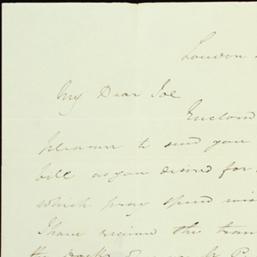 London
My Dear Joe
Enclosed
pleasure to send you
bill as you desired for
which pray spend
I have received the
the